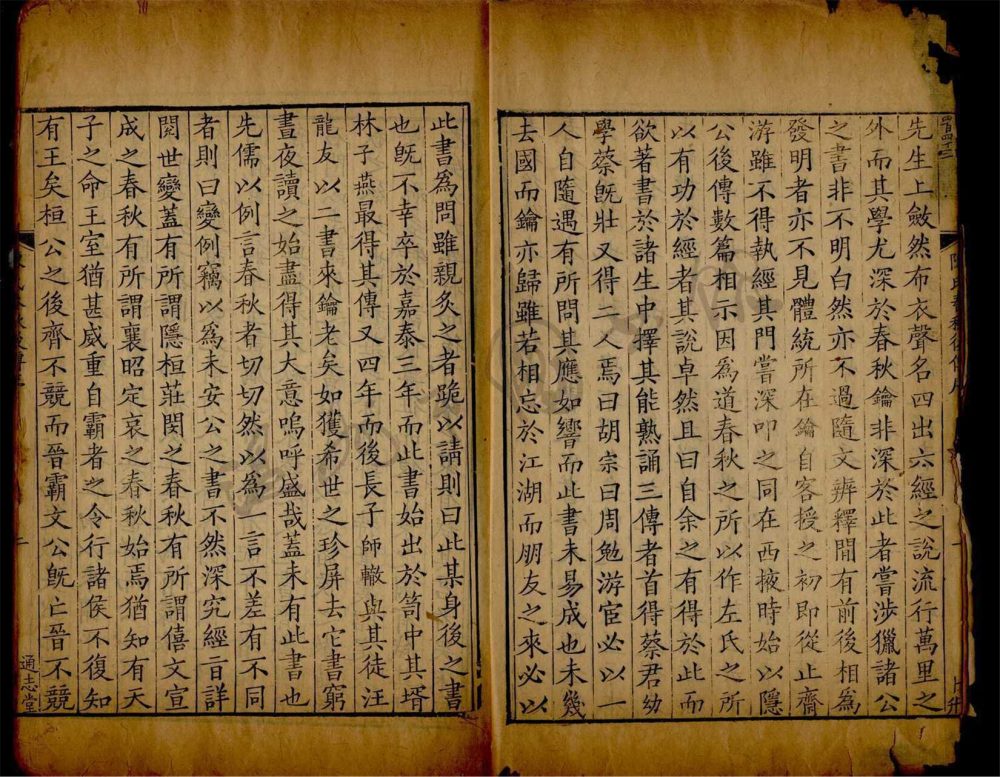 先生上斂然布衣聲名四出六經之說流行萬里之
外而其學尤深於春秋鑰非深於此者嘗涉獵諸公
之書非不明白然亦不過隨文辨釋間有前後相為
發明者亦不見體統所在鑰自客授之初即從止齋
游雖不得執經其門嘗深叩之同在西掖時始以隱
公後傳數篇相示因為道春秋之所以作左氏之所
以有功於經者其說卓然且曰自余之有得於此而
欲著書於諸生中擇其能熟誦三傳者首得蔡君幼
學蔡旣壯又得二人焉曰胡宗曰周勉游宦必以一
人自隨遇有所問其應如響而此書未易成也未幾
去國而鑰亦歸雖若相忘於江湖而朋友之來必以
此書爲問雖親炙之者跪以請則曰此某身後之書
也旣不幸卒於嘉泰三年而此書始出於笥中其壻
林子燕最得其傳又四年而後長子師轍與其徒汪
龍友以二書來鑰老矣如獲希世之珍屏去它書窮
晝夜讀之始盡得其大意嗚呼盛哉蓋未有此書也
先儒以例言春秋者切切然以為一言不差有不同
者則曰變例竊以爲未安公之書不然深究經旨詳
閱世變蓋有所謂隱桓莊閔之春秋有所謂僖文宣
成之春秋有所謂襄昭定哀之春秋始焉猶知有天
子之命王室猶甚威重自霸者之令行諸侯不復知
有王矣桓公之後齊不競而晉霸文公旣亡晉不競
通志堂